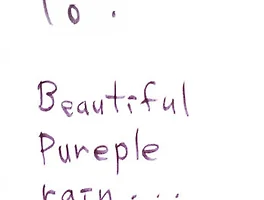 To.
Beautiful
Pureple
rain...